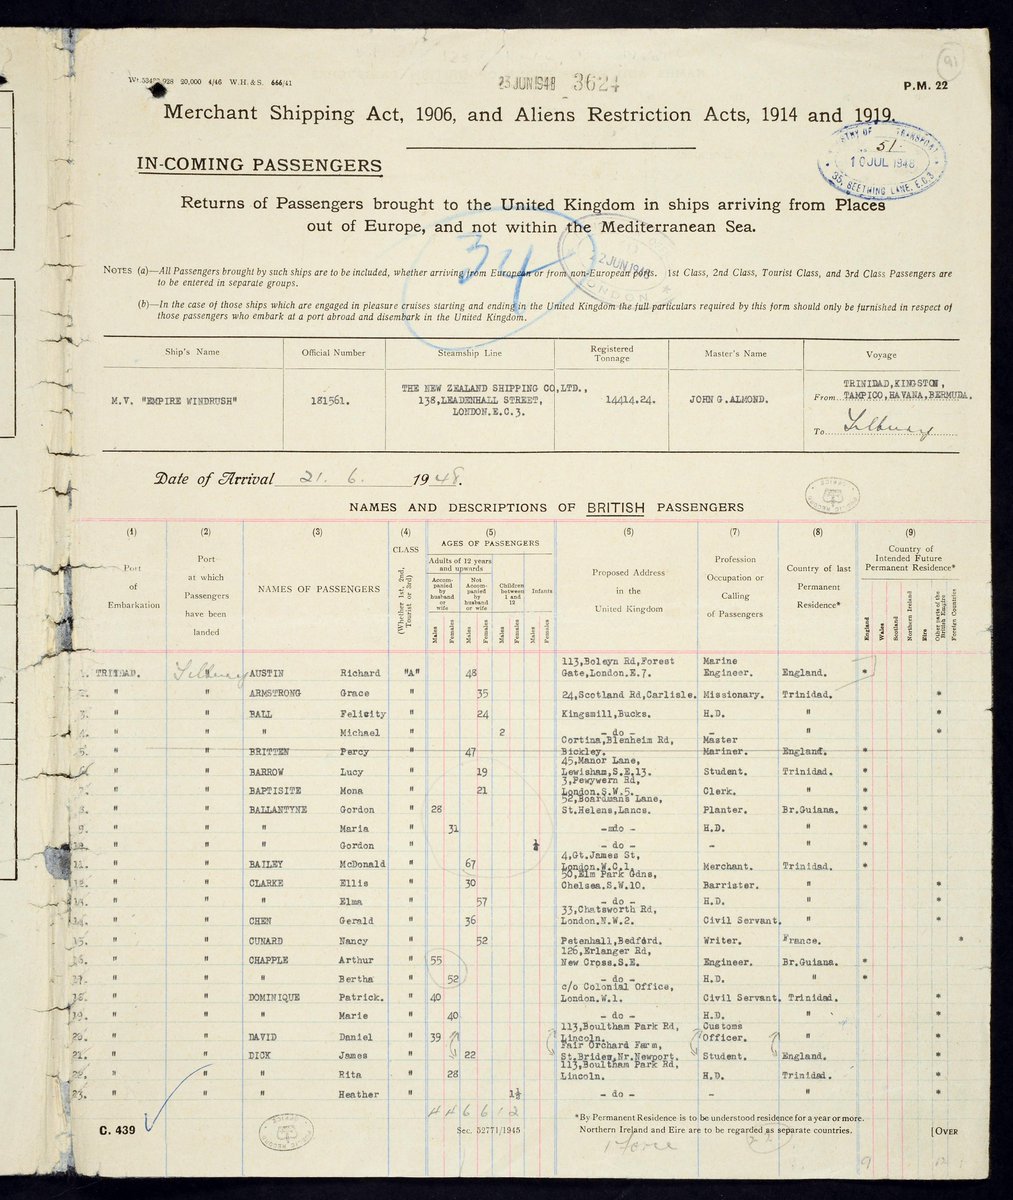 Wt. 53492/928 20,000 4/46 W.H.&S. 666/41
23 JUN 1948 3624
91
P.M. 22
Merchant Shipping Act, 1906, and Aliens Restriction Acts, 1914 and 1919.
51.
10 JUL 1948
35, SEETHING LANE, E.C.3
IN-COMING PASSENGERS
Returns of Passengers brought to the United Kingdom in ships arriving from Places
out of Europe, and not within the Mediterranean Sea.
34
2 JUN 1948
LONDON
NOTES (a)—All Passengers brought by such ships are to be included, whether arriving from European or from non-European ports. 1st Class, 2nd Class, Tourist Class, and 3rd Class Passengers are
to be entered in separate groups.
(b)—In the case of those ships which are engaged in pleasure cruises starting and ending in the United Kingdom the full particulars required by this form should only be furnished in respect of
those passengers who embark at a port abroad and disembark in the United Kingdom.
Ship's Name Official Number Steamship Line Registered Tonnage Master's Name Voyage
M.V. "EMPIRE WINDRUSH" 181561. THE NEW ZEALAND SHIPPING CO,LTD., 138,LEADENHALL STREET, LONDON.E.C.3. 14414.24. JOHN G.ALMOND. From TRINIDAD,KINGSTON, TAMPICO,HAVANA,BERMUDA.
To Tilbury
Date of Arrival 21. 6. 1948.
NAMES AND DESCRIPTIONS OF BRITISH PASSENGERS
(1) (2) (3) (4) (5) (6) (7) (8) (9)
Port of Embarkation
Port at which Passengers have been landed
NAMES OF PASSENGERS
CLASS (Whether 1st, 2nd, Tourist or 3rd)
AGES OF PASSENGERS
Adults of 12 years and upwards
Accompanied by husband or wife
Not Accompanied by husband or wife
Children between 1 and 12
Infants
Males Females Males Females Males Females Males Females
Proposed Address in the United Kingdom
Profession Occupation or Calling of Passengers
Country of last Permanent Residence*
Country of Intended Future Permanent Residence*
England Wales Scotland Northern Ireland Eire Other parts of the British Empire Foreign Countries
1. TRINIDAD. Tilbury AUSTIN Richard "A" 48 113,Boleyn Rd,Forest Gate,London.E.7. Marine Engineer. England. *
2. " " ARMSTRONG Grace " 35 24,Scotland Rd,Carlisle. Missionary. Trinidad. *
3. " " BALL Felicity " 24 Kingsmill,Bucks. H.D. " *
4. " " " Michael " 2 - do - - " *
5. " " BRITTEN Percy " 47 Cortina,Blenheim Rd, Bickley. Master Mariner. England. *
6. " " BARROW Lucy " 19 45,Manor Lane, Lewisham,S.E.13. Student. Trinidad. *
7. " " BAPTISITE Mona " 21 3,Pewywern Rd, London.S.W.5. Clerk. " *
8. " " BALLANTYNE Gordon " 28 52,Boardmans Lane, St.Helens,Lancs. Planter. Br.Guiana. *
9. " " " Maria " 31 - do - H.D. " *
10. " " " Gordon " ½ - do - - " *
11. " " BAILEY McDonald " 67 4,Gt.James St, London.W.C.1. Merchant. Trinidad. *
12. " " CLARKE Ellis " 30 50,Elm Park Gdns, Chelsea.S.W.10. Barrister. " *
13. " " " Elma " 57 - do - H.D. " *
14. " " CHEN Gerald " 36 33,Chatsworth Rd, London.N.W.2. Civil Servant. " *
15. " " CUNARD Nancy " 52 Petenhall,Bedford. Writer. France. *
16. " " CHAPPLE Arthur " 55 126,Erlanger Rd, New Cross.S.E. Engineer. Br.Guiana. *
17. " " " Bertha " 52 - do - H.D. " *
18. " " DOMINIQUE Patrick. " 40 c/o Colonial Office, London.W.1. Civil Servant. Trinidad. *
19. " " " Marie " 40 - do - H.D. " *
20. " " DAVID Daniel " 39 113,Boultham Park Rd, Lincoln. Customs Officer. " *
21. " " DICK James " 22 Fair Orchard Farm, St.Brides,Nr.Newport. Student. England. *
22. " " " Rita " 28 113,Boultham Park Rd, Lincoln. H.D. Trinidad. *
23. " " " Heather " 1½ - do - - " *
4 4 6 6 1 2
C. 439
Sec. 52771/1945
*By Permanent Residence is to be understood residence for a year or more.
Northern Ireland and Eire are to be regarded as separate countries.
[OVER
22
9 12 1